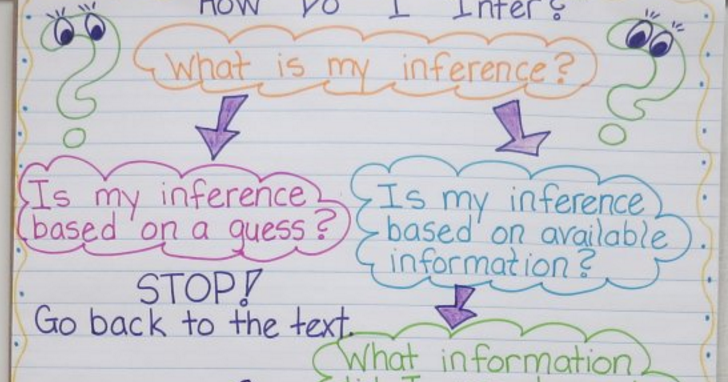 How Do I Infer?
What is my inference?
Is my inference
based on a guess?
STOP!
Go back to the text.
Is my inference
based on available
information?
What information